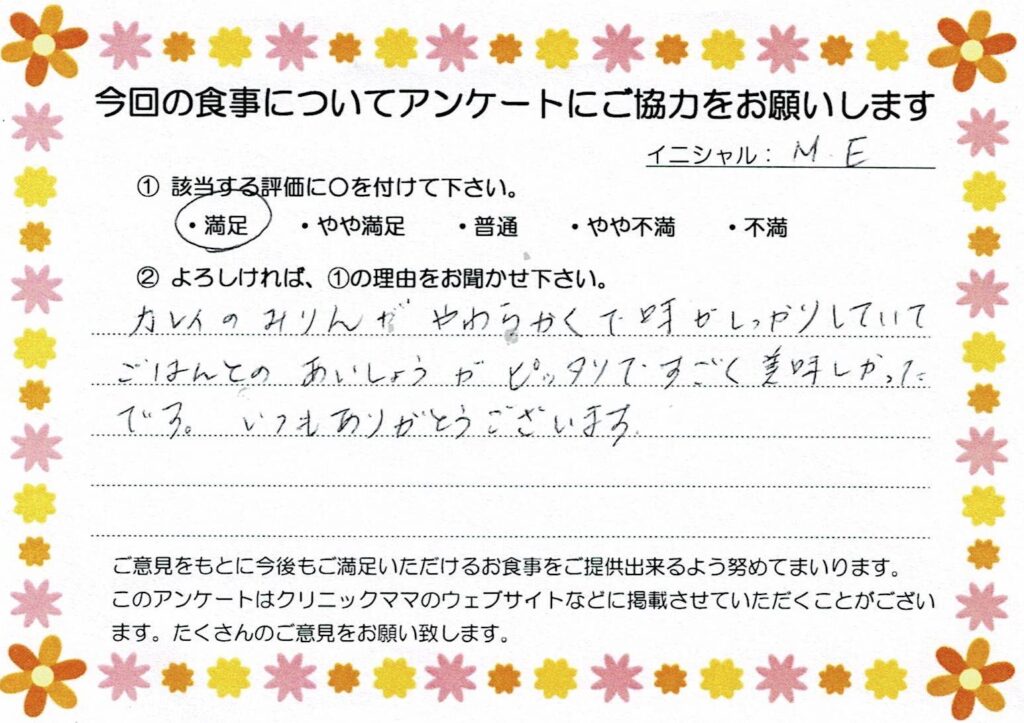 今回の食事についてアンケートにご協力をお願いします
イニシャル： M.E
① 該当する評価に〇を付けて下さい。
・満足 ・やや満足 ・普通 ・やや不満 ・不満
② よろしければ、①の理由をお聞かせ下さい。
カレイのみりんがやわらかくて味がしっかりしていて
ごはんとのあいしょうがピッタリですごく美味しかった
です。いつもありがとうございます。
ご意見をもとに今後もご満足いただけるお食事をご提供出来るよう努めてまいります。
このアンケートはクリニックママのウェブサイトなどに掲載させていただくことがござい
ます。たくさんのご意見をお願い致します。